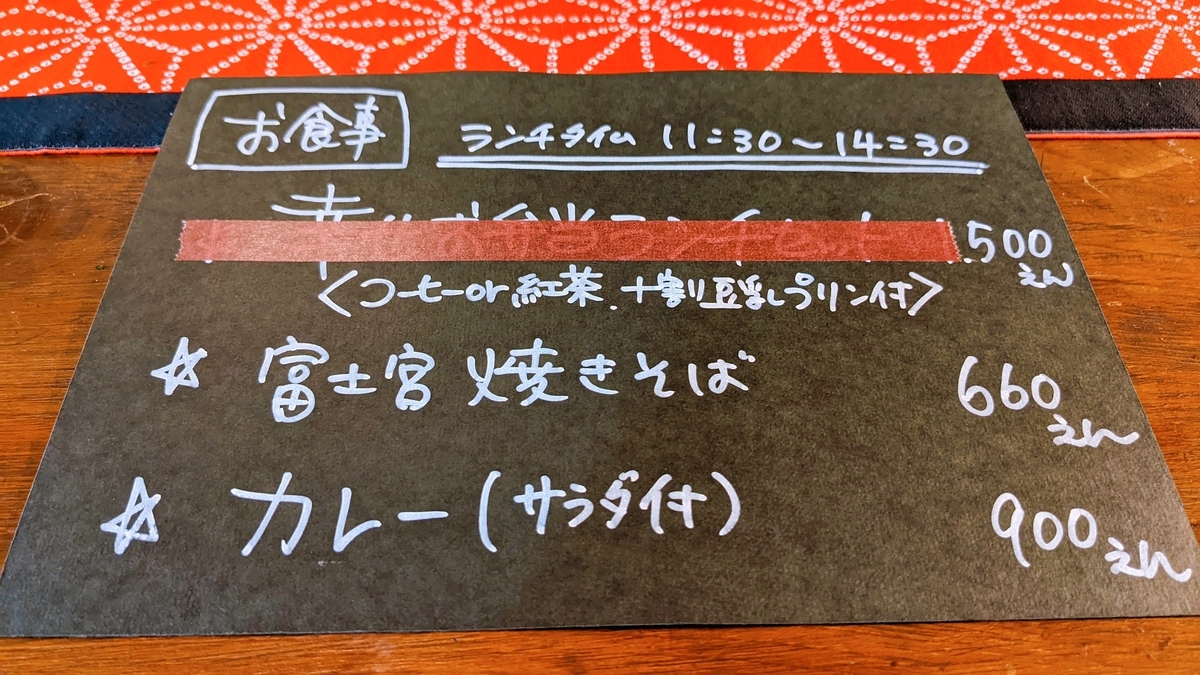 お食事
ランチタイム 11:30～14:30
お弁当ランチセット .500えん
<コーヒーor紅茶、+割豆乳プリン付>
☆ 富士宮焼きそば 660えん
☆ カレー(サラダ付) 900えん